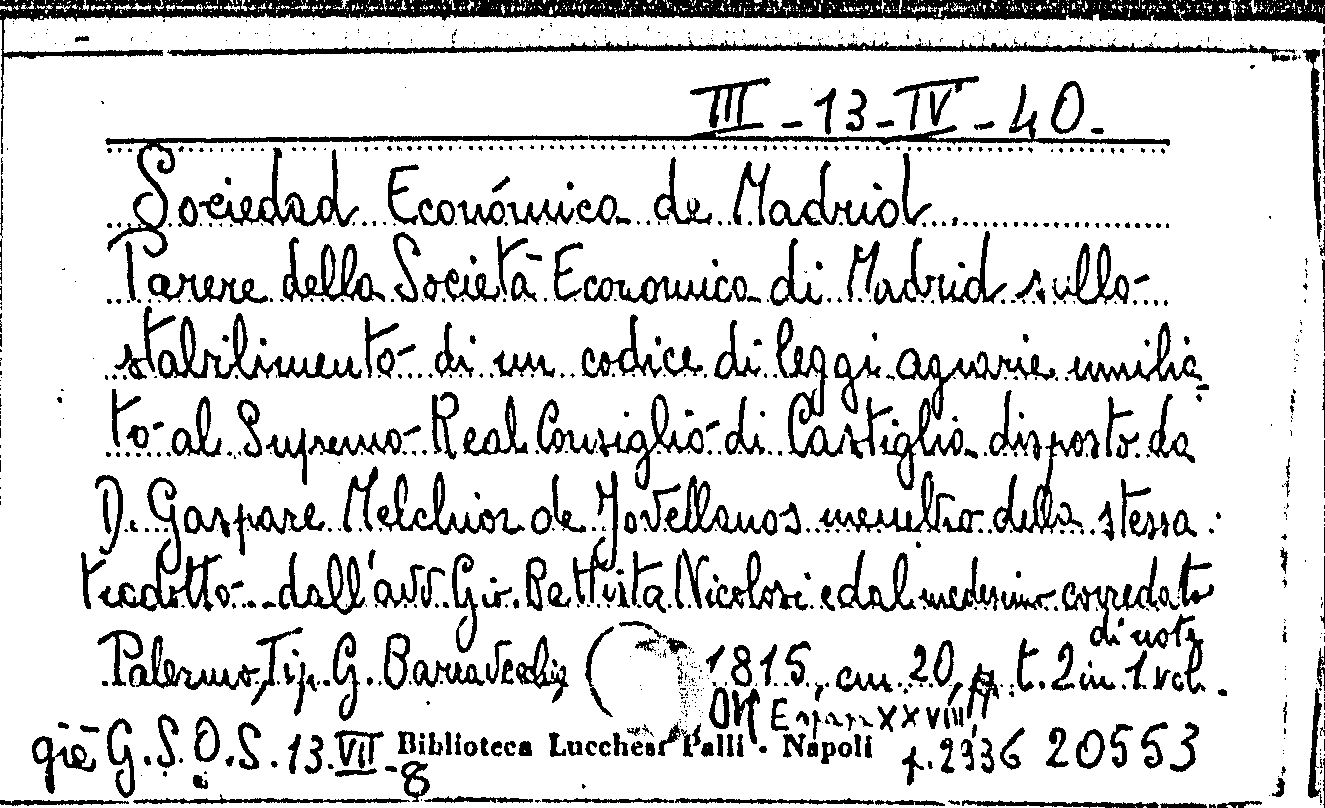 III - 13 - IV - 40.
Sociedad Económica de Madrid
Parere della Società Economica di Madrid sullo
stabilimento di un codice di leggi agrarie umilia
to al Supremo Real Consiglio di Castiglia disposto da
D. Gaspare Melchior de Jovellanos membro della stessa
tradotto dall'avv. Gio. Battista Nicolosi e dal medesimo corredato
di note
Palermo, Tip. G. Barravecchia 1815, cm. 20, t. 2 in 1 vol.
XXVIII,
già G.S.O.S. 13. VII - 8 Biblioteca Lucchesi Palli - Napoli p. 2936 20553